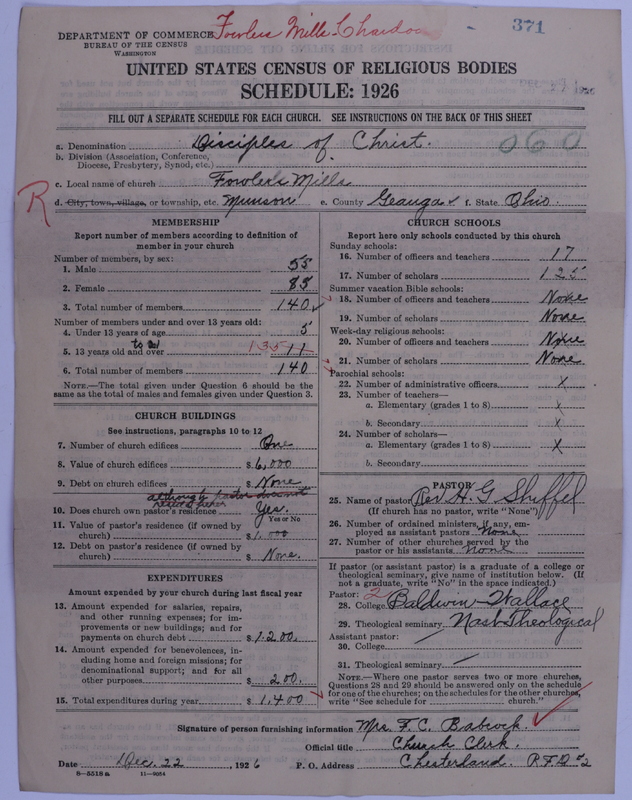 Fowlers Mills - Chardon
371
DEPARTMENT OF COMMERCE
BUREAU OF THE CENSUS
WASHINGTON
UNITED STATES CENSUS OF RELIGIOUS BODIES
SCHEDULE: 1926
FILL OUT A SEPARATE SCHEDULE FOR EACH CHURCH. SEE INSTRUCTIONS ON THE BACK OF THIS SHEET
a. Denomination Disciples of Christ. 060
b. Division (Association, Conference, Diocese, Presbytery, Synod, etc.)
c. Local name of church Fowlers Mills
R
d. City, town, village, or township, etc. Munson e. County Geauga f. State Ohio.
MEMBERSHIP
Report number of members according to definition of member in your church
Number of members, by sex:
1. Male 55
2. Female 85
3. Total number of members 140
Number of members under and over 13 years old:
4. Under 13 years of age 5
5. 13 years old and over 135
6. Total number of members 140
NOTE.—The total given under Question 6 should be the same as the total of males and females given under Question 3.
CHURCH BUILDINGS
See instructions, paragraphs 10 to 12
7. Number of church edifices One
8. Value of church edifices $ 6,000
9. Debt on church edifices $ None
although pastor does not
10. Does church own pastor's residence Yes.
Yes or No
11. Value of pastor's residence (if owned by church) $ 1,000
12. Debt on pastor's residence (if owned by church) $ None.
EXPENDITURES
Amount expended by your church during last fiscal year
13. Amount expended for salaries, repairs, and other running expenses; for improvements or new buildings; and for payments on church debt $ 1200.
14. Amount expended for benevolences, including home and foreign missions; for denominational support; and for all other purposes $ 200.
15. Total expenditures during year $ 1,400
CHURCH SCHOOLS
Report here only schools conducted by this church
Sunday schools:
16. Number of officers and teachers 17
17. Number of scholars 125
Summer vacation Bible schools:
18. Number of officers and teachers None
19. Number of scholars None
Week-day religious schools:
20. Number of officers and teachers None
21. Number of scholars None
Parochial schools:
22. Number of administrative officers x
23. Number of teachers—
a. Elementary (grades 1 to 8) x
b. Secondary x
24. Number of scholars—
a. Elementary (grades 1 to 8) x
b. Secondary
PASTOR
25. Name of pastor Rev H. G. Shiffel
(If church has no pastor, write "None")
26. Number of ordained ministers, if any, employed as assistant pastors None
27. Number of other churches served by the pastor or his assistants None
If pastor (or assistant pastor) is a graduate of a college or theological seminary, give name of institution below. (If not a graduate, write "No" in the space indicated.)
Pastor: 2
28. College Baldwin-Wallace
29. Theological seminary Nast Theological
Assistant pastor:
30. College
31. Theological seminary
NOTE.—Where one pastor serves two or more churches, Questions 28 and 29 should be answered only on the schedule for one of the churches; on the schedules for the other churches, write "See schedule for church."
Signature of person furnishing information Mrs. F. C. Babcock
Official title Church Clerk.
Date Dec. 22, 1926 P. O. Address Chesterland. R.F.D #2
8—5518a 11—9054